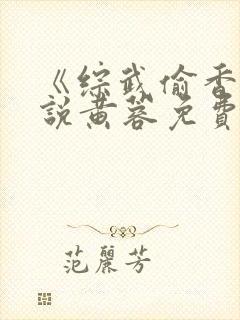 《综武偷香
説黄蓉免費
范麗芳